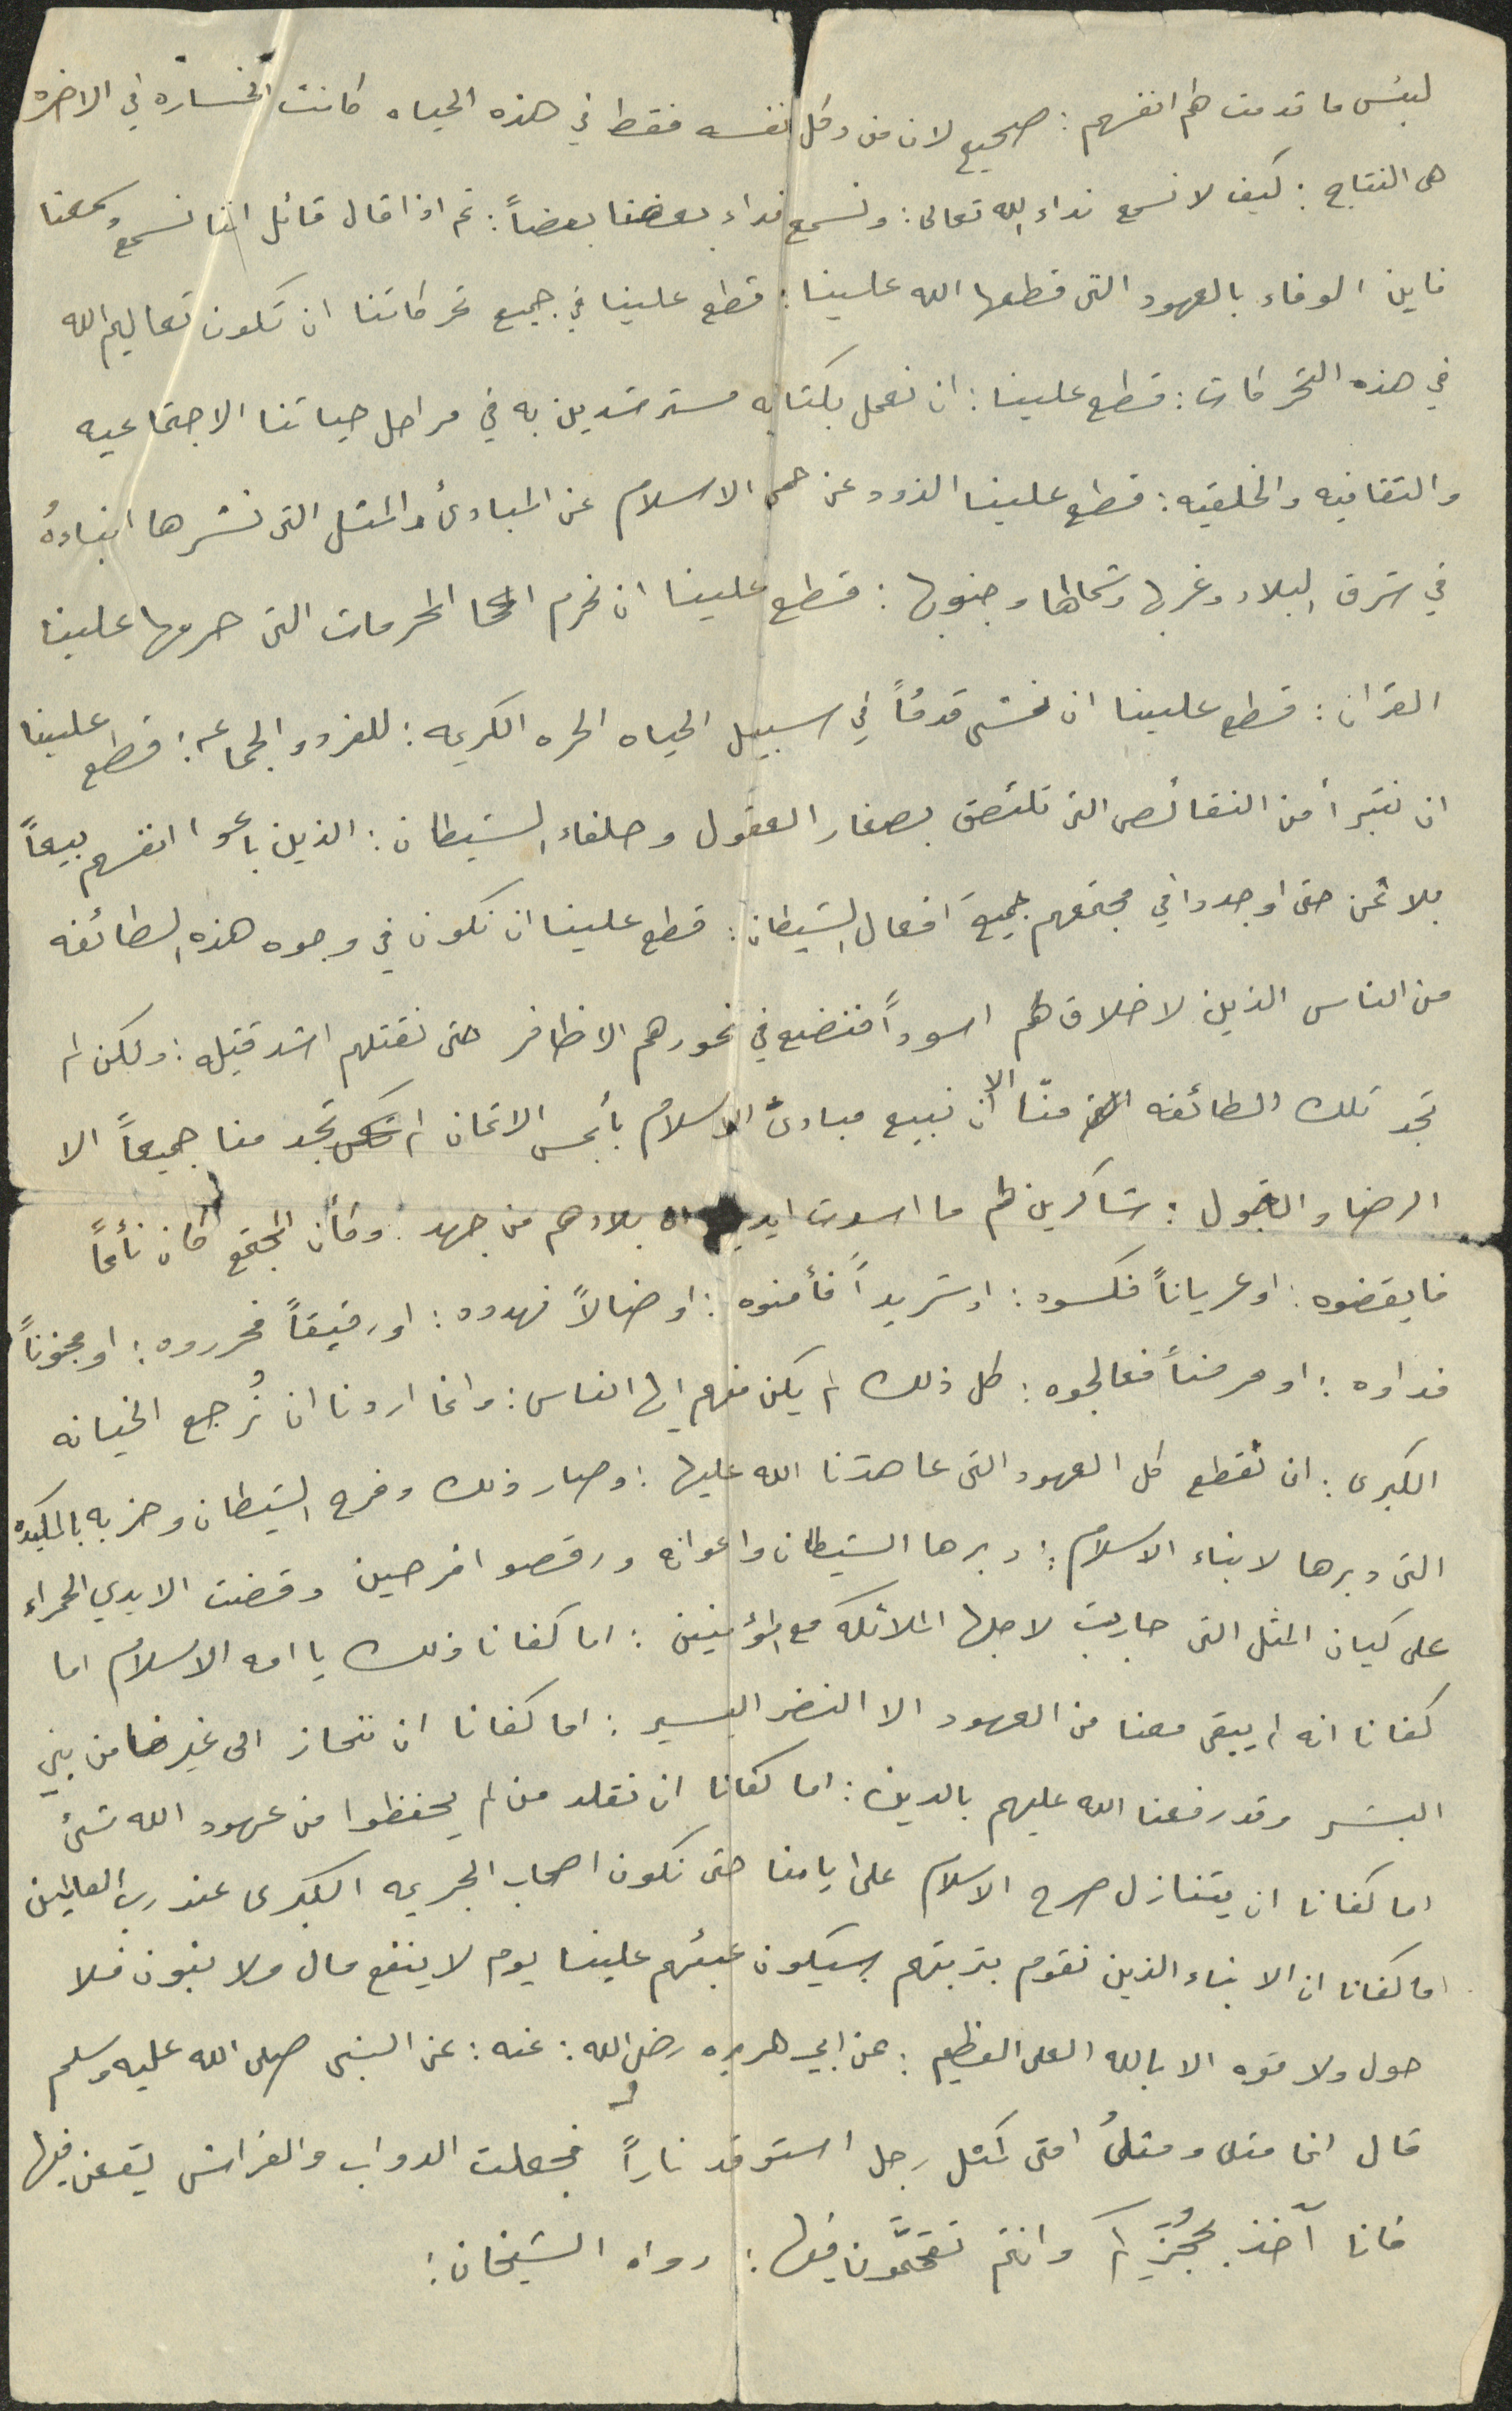 لبئس ما قدمت لهم انفسهم : صحيح لان من وكل نفسه فقط في هذه الحياه كانت الخساره في الاخره
هى النتاج : كيف لا نسمع نداء الله تعالى : ونسمع نداء بعضنا بعضاً : ثم اذا قال قائل اننا نسمع وسمعنا
فاين الوفاء بالعهود التى قطعها الله علينا : قطع علينا في جميع تحركاتنا ان تكون تعاليم الله
في هذه التحركات : قطع علينا : ان نعمل بكتابه مسترشدين به في مراحل حياتنا الاجتماعيه
والثقافيه والخلقيه : قطع علينا الذود عن حمى الاسلام عن المبادئ والمثل التى نشرها ابناءهُ
في شرق البلاد وغربها وشمالها وجنوبها : قطع علينا ان نحرم المحرمات التى حرمها علينا
القران : قطع علينا ان نمشى قدمُاً في سبيل الحياه الحره الكريمه : للفرد والجماعه : قطع علينا
ان نتبرأ من النقائص التى تلتصق بصغار العقول وحلفاء الشيطان : الذين باعوا انفسهم بيعاً
بلا ثمن حتى اوجدوا في مجتمعهم جميعَ افعال الشيطان : قطع علينا ان نكون في وجوه هذه الطائفه
من الناس الذين لا خلاق لهم اسوداً فنضع في نحورهم الاظافر حتى نقتلهم اشد قتيله : ولكن لم
تجد تلك الطائفه منّا الا ان نبيع مبادئ الاسلام بأبخس الاثمان لم تجد منا جميعاً الا
الرضا والقبول : شاكرين لهم ما اسدت بلادهم من جهد : وكأن المجتمع كان نأئماً
فايقضوه : او عرياناً فكسوه : او شريداً فأمنوه : او ضالاً فهدوه : او رقيقاً فحرروه : او مجنوناً
فداوه : او مرضاً فعالجوه : كل ذلك لم يكن منهم ايها الناس : وانما اردنا ان نُرجع الخيانه
الكبرى : ان نقطع كل العهود التى عاهدنا الله عليها : وصار ذلك وفرح الشيطان وحزبه بالمكيده
التى دبرها لابناء الاسلام : دبرها الشيطان واعوانه ورقصوا فرحين وقضت الايدي الحمراء
على كيان المثل التى حاربت لاجلها الملائكه مع المؤمنين : اما كفانا ذلك يا امه الاسلام اما
كفانا انه لم يبقى معنا من العهود الا النضر اليسير : اما كفانا ان ننحاز الى غيرنا من بني
البشر وقد رفعنا الله عليهم بالدين : اما كفانا ان نقلد من لم يحفظوا من عهود الله شئ
اما كفانا ان يتنازل صرح الاسلام على ايامنا حتى نكون اصحاب الجريمه الكبرى عند رب العالمين
اما كفانا ان الابناء الذين نقوم بتربتهم سيكون عبئهم علينا يوم لا ينفع مال ولا بنون فلا
حول ولا قوه الا بالله العلى العظيم : عن ابي هريره رضى الله : عنه : عن النبى صلى الله عليه وسلم
قال انما مثلى ومثلُ امتى كمثل رجل استوقد ناراً فجعلت الدواب والفراش يقعن فيها
فانا آخذ بحُجَزِكم وانتم تقحّمون فيها : رواه الشيخان :